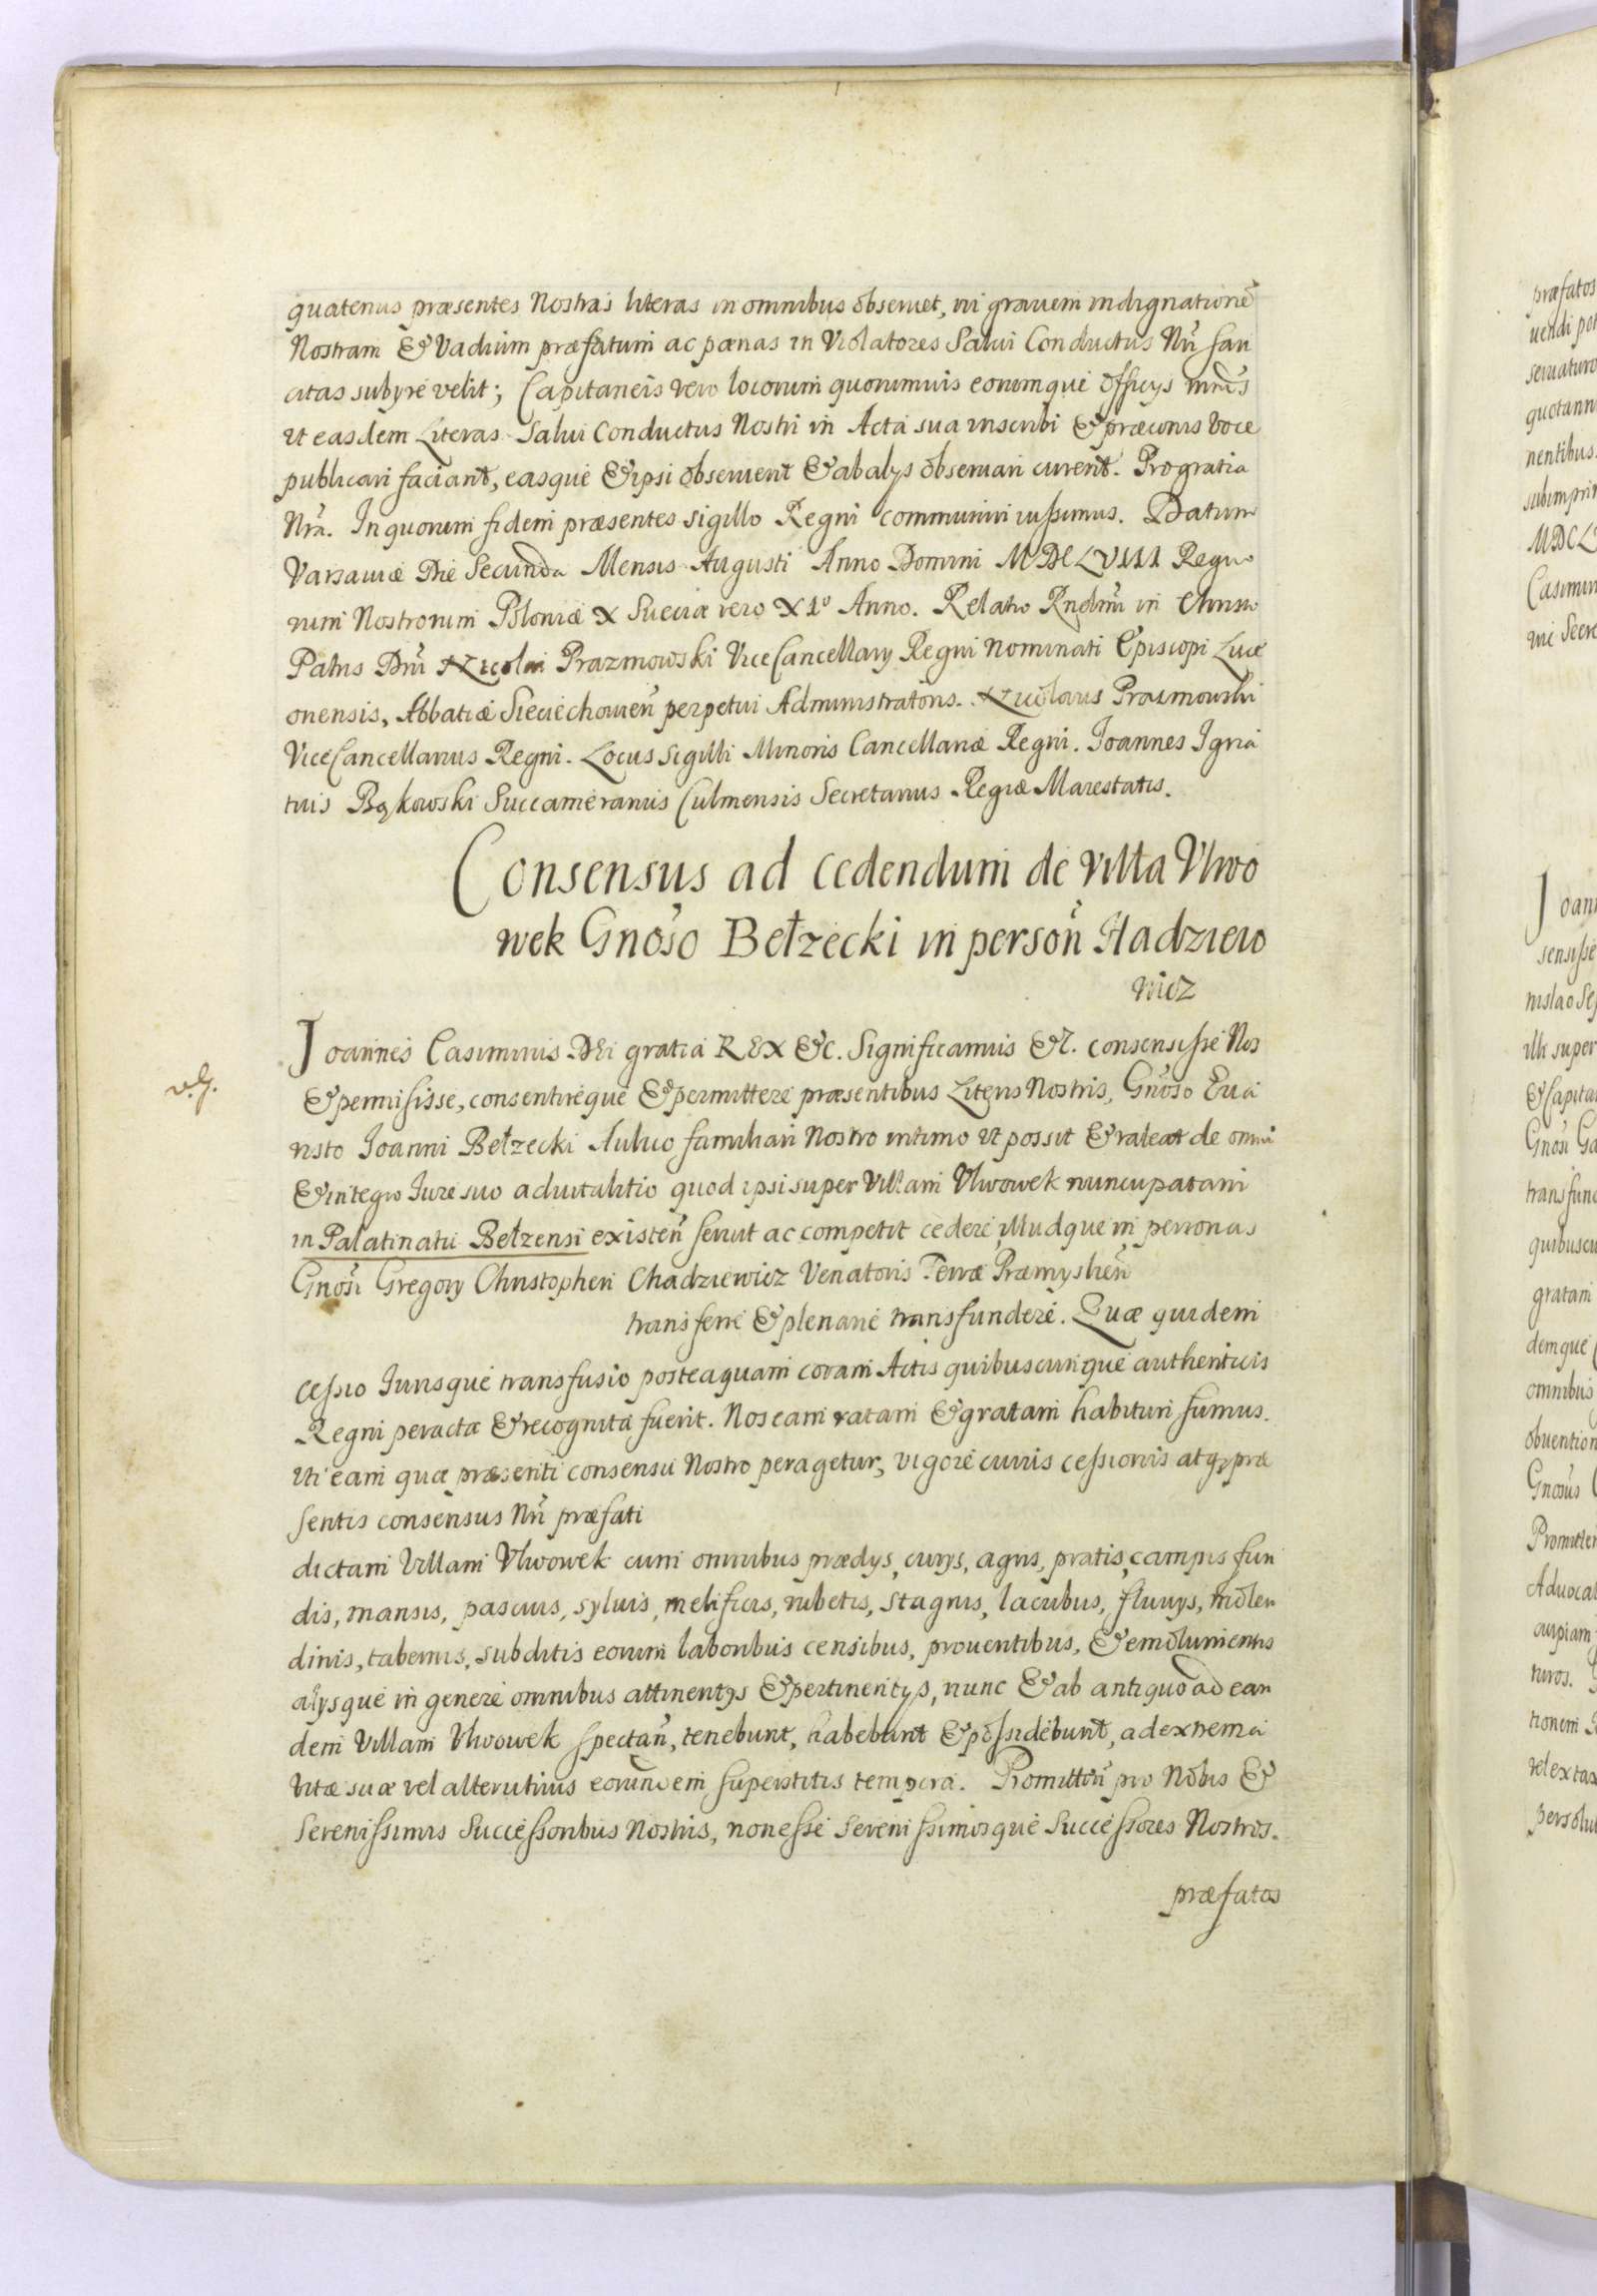 quatenus præsentes Nostras literas in omnibus obseruet, ni grauem indignationē
Nostram & Vadium præfatum ac pœnas in Violatores Salui Conductus Nrī san
citas subyre velit; Capitaneis vero locorum quorumuis eorumque officys mnds
ut easdem Literas Salui Conductus Nostri in Acta sua inscribi & præconis voce
publicari faciant, easque & ipsi obseruent & ab alys obseruari curent. Pro gratia
Nrā. In quorum fidem præsentes sigillo Regni communiri iussimus. Datum
Varsauiæ Die Secunda Mensis Augusti Anno Domini MDCLVIII Regno
rum Nostrorum Poloniæ X Sueciæ vero XIº Anno. Relatio Rndmī in Christo
Patris Dnī Nicolai Prazmowski ViceCancellary Regni Nominati Episcopi Luce
oriensis, Abbatiæ Sieciechouień perpetui Administratoris. Nicolaus Prazmowski
ViceCancellarius Regni. Locus Sigilli Minoris Cancellariæ Regni. Joannes Igna
tius Bąkowski Succamerarius Culmensis Secretarius Regiæ Maiestatis.
Consensus ad cedendum de Villa Vhwo
wek Gnoso Bełzecki in person Hadziew
wicz
Joannes Casimirus DEi gratia REX &c. Significamus &c. consensisse Nos
v.g.
& permisisse, consentireque & permittere præsentibus Literis Nostris, Gnoso Eua
risto Joanni Bełzecki Aulico familiari Nostro intimo ut possit & valeat de omni
& integro Jure suo aduitalitio quod ipsi super Villam Vhwowek nuncupatam
in Palatinatu Bełzensi existeñ seruit ac competit cedere illudque in personas
Gnosi Gregory Christopheri Chadziewicz Venatoris Terræ Præmysleñ
transferre & plenarie transfundere. Quæ quidem
cessio Jurisque transfusio posteaquam coram Actis quibuscunque authenticis
Regni peracta & recognita fuerit. Nos eam ratam & gratam habituri sumus.
uti eam quæ præsenti consensu Nostro peragetur, vigore cuius cessionis atq præ
sentis consensus Nrī præfati
dictam Villam Vhwowek cum omnibus prædys, curys, agris, pratis, campis fun
dis, mansis, pascuis, syluis, melificis, rubetis, stagnis, lacubus, fluuys, molen
dinis, tabernis, subditis eorum laboribus censibus, prouentibus, & emolumentis
alysque in genere omnibus attinentys & pertinentys, nunc & ab antiquo ad ean
dem Villam Vhwowek spectañ, tenebunt, habebunt & possidebunt, ad extrema
vitæ suæ vel alterutrius eorundem superstitis tempora. Promitteñ pro Nobis &
Serenissimis Successoribus Nostris, non esse Serenissimosque Successores Nostros.
præfatos